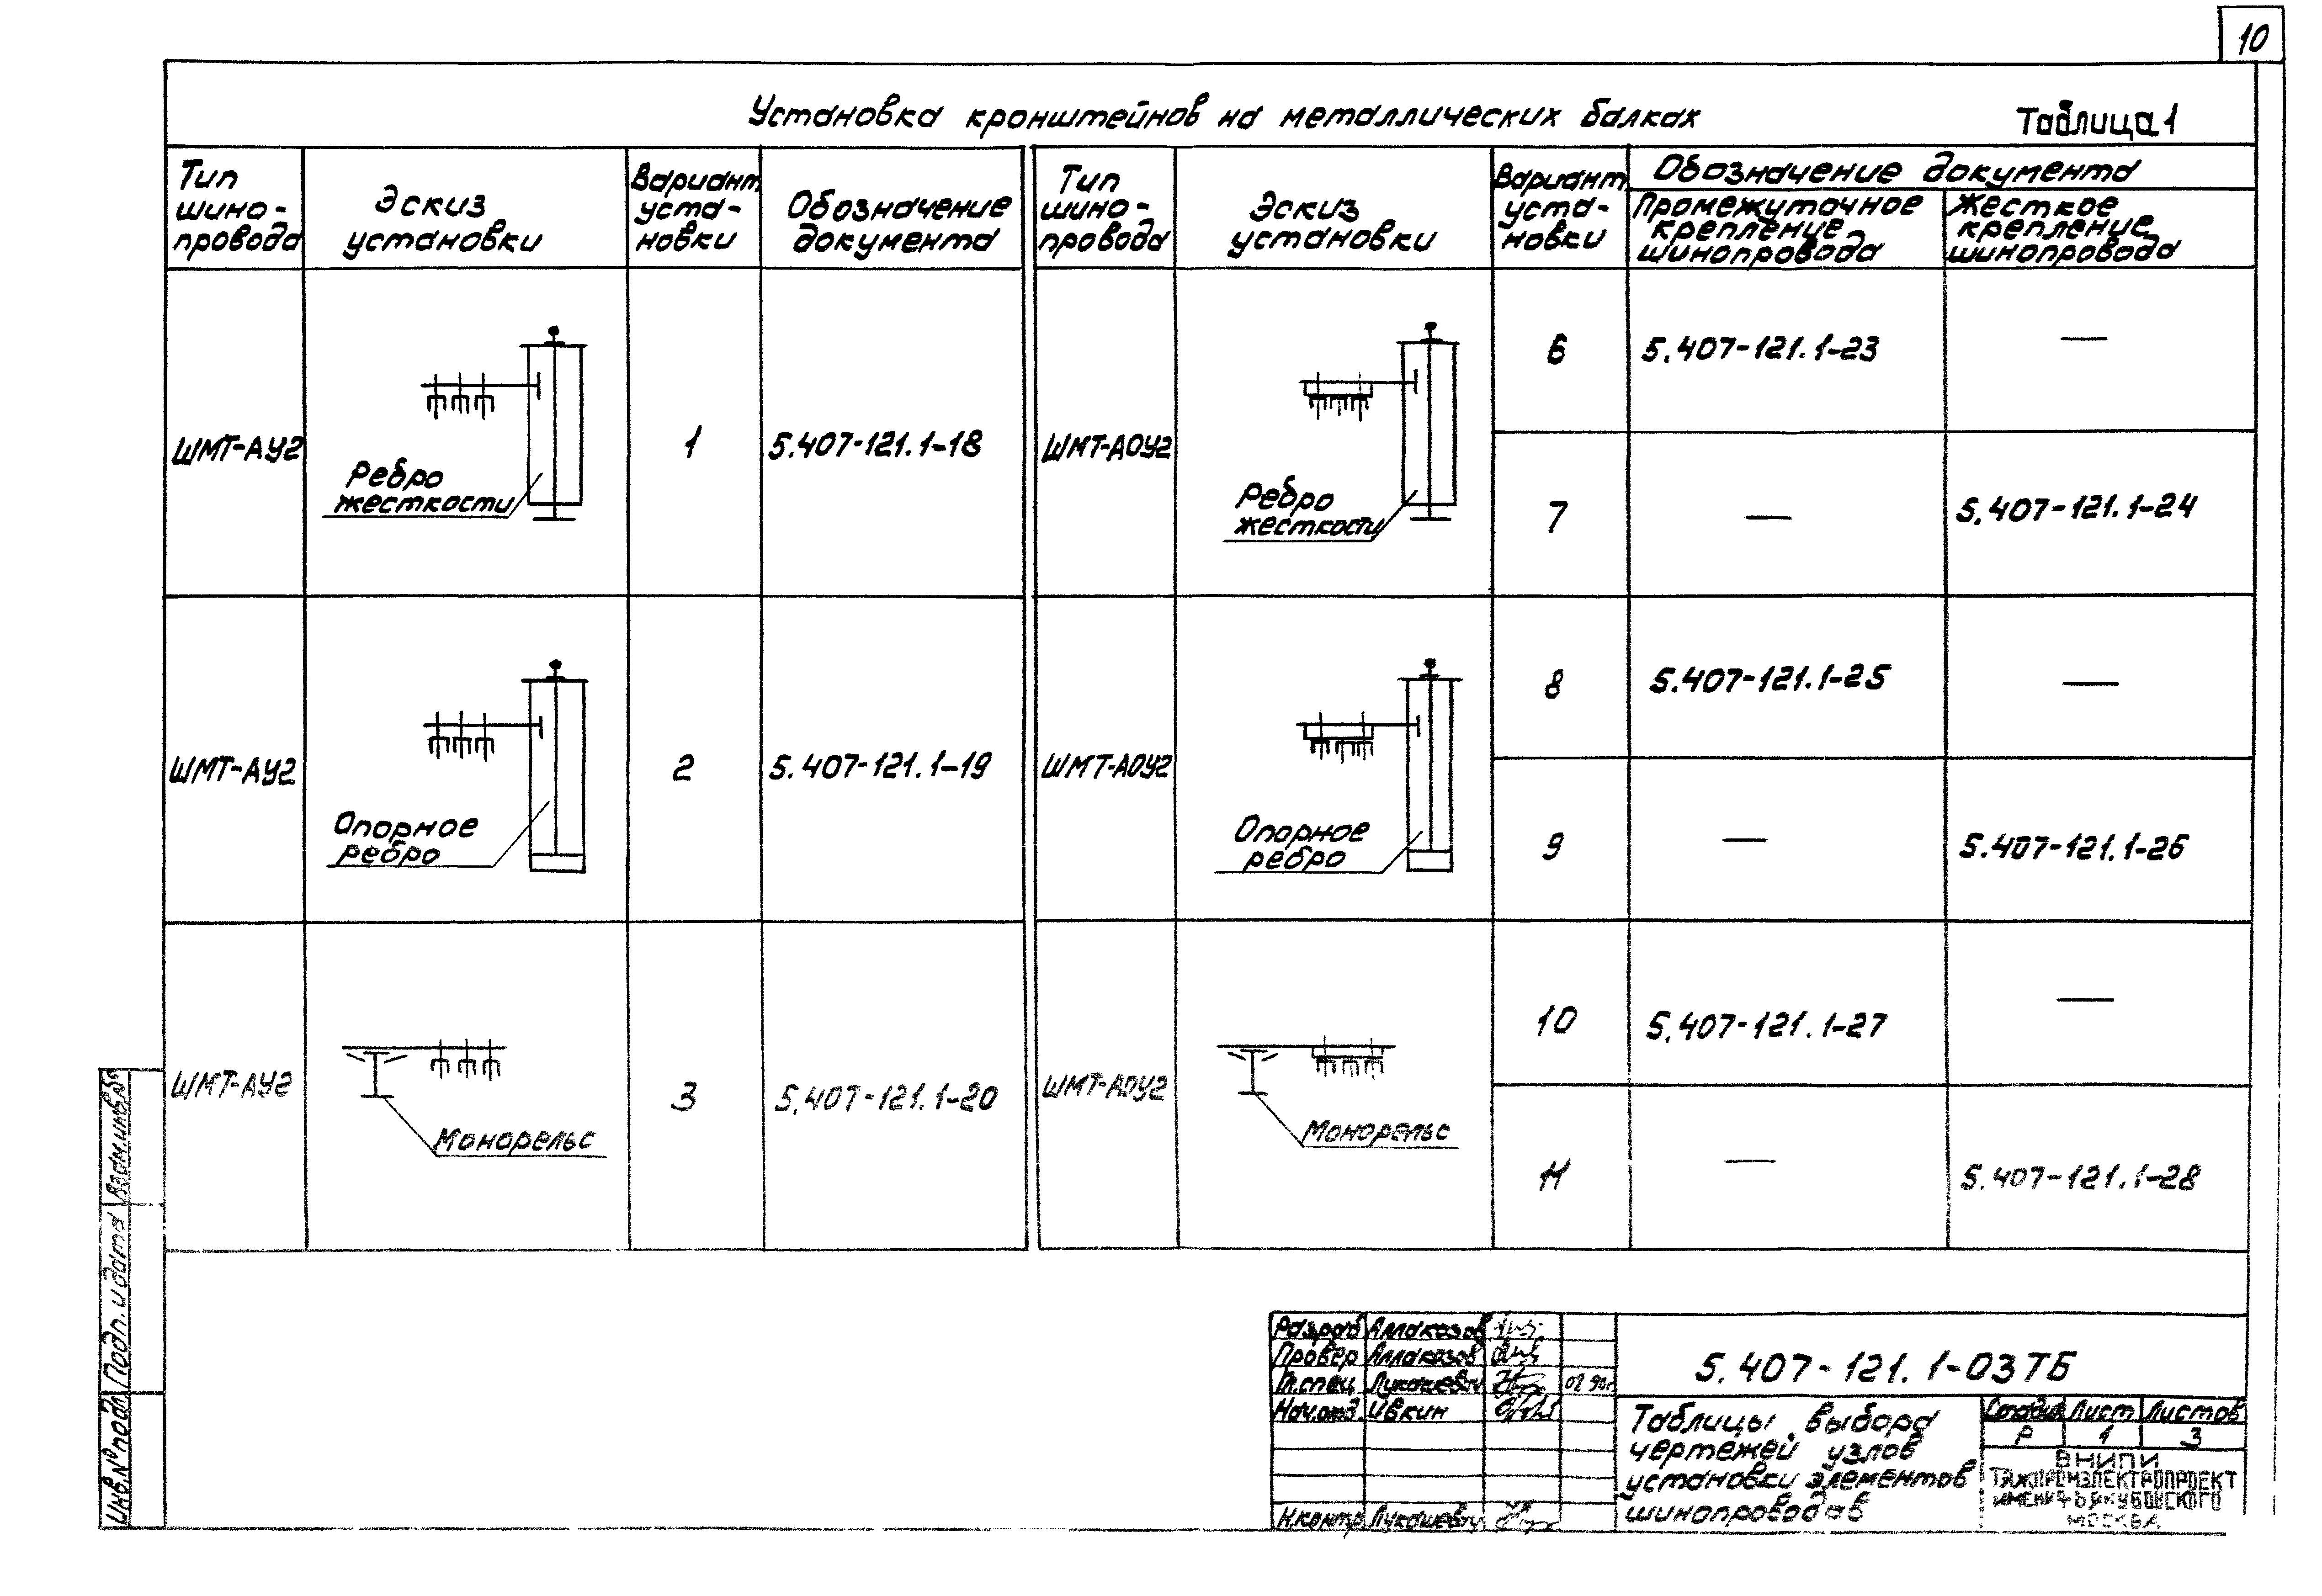 10
Установка кронштейнов на металлических балках
Таблица 1
Тип
шино-
провода
Эскиз
установки
Вариант
уста-
новки
Обозначение
документа
Тип
шино-
провода
Эскиз
установки
Вариант
уста-
новки
Обозначение документа
Промежуточное
крепление
шинопровода
Жесткое
крепление
шинопровода
ШМТ-АУ2
Ребро
жесткости
1
5.407-121.1-18
ШМТ-АОУ2
Ребро
жесткости
6
5.407-121.1-23
—
7
—
5.407-121.1-24
ШМТ-АУ2
Опорное
ребро
2
5.407-121.1-19
ШМТ-АОУ2
Опорное
ребро
8
5.407-121.1-25
—
9
—
5.407-121.1-26
ШМТ-АУ2
Монорельс
3
5.407-121.1-20
ШМТ-АОУ2
Монорельс
10
5.407-121.1-27
—
11
—
5.407-121.1-28
Взам.инв.№
Подп. и дата
Инв.№ подл.
Разраб Алмакозов
Провер Алмакозов
Гл.спец Лукашевич 02.90г.
Нач.отд. Ивкин
Н.контр Лукашевич
5.407-121.1-03ТБ
Таблицы выбора
чертежей узлов
установки элементов
шинопроводов
Стадия Лист Листов
Р 1 3
ВНИПИ
ТЯЖПРОМЭЛЕКТРОПРОЕКТ
ИМЕНИ Ф.Б.ЯКУБОВСКОГО
МОСКВА